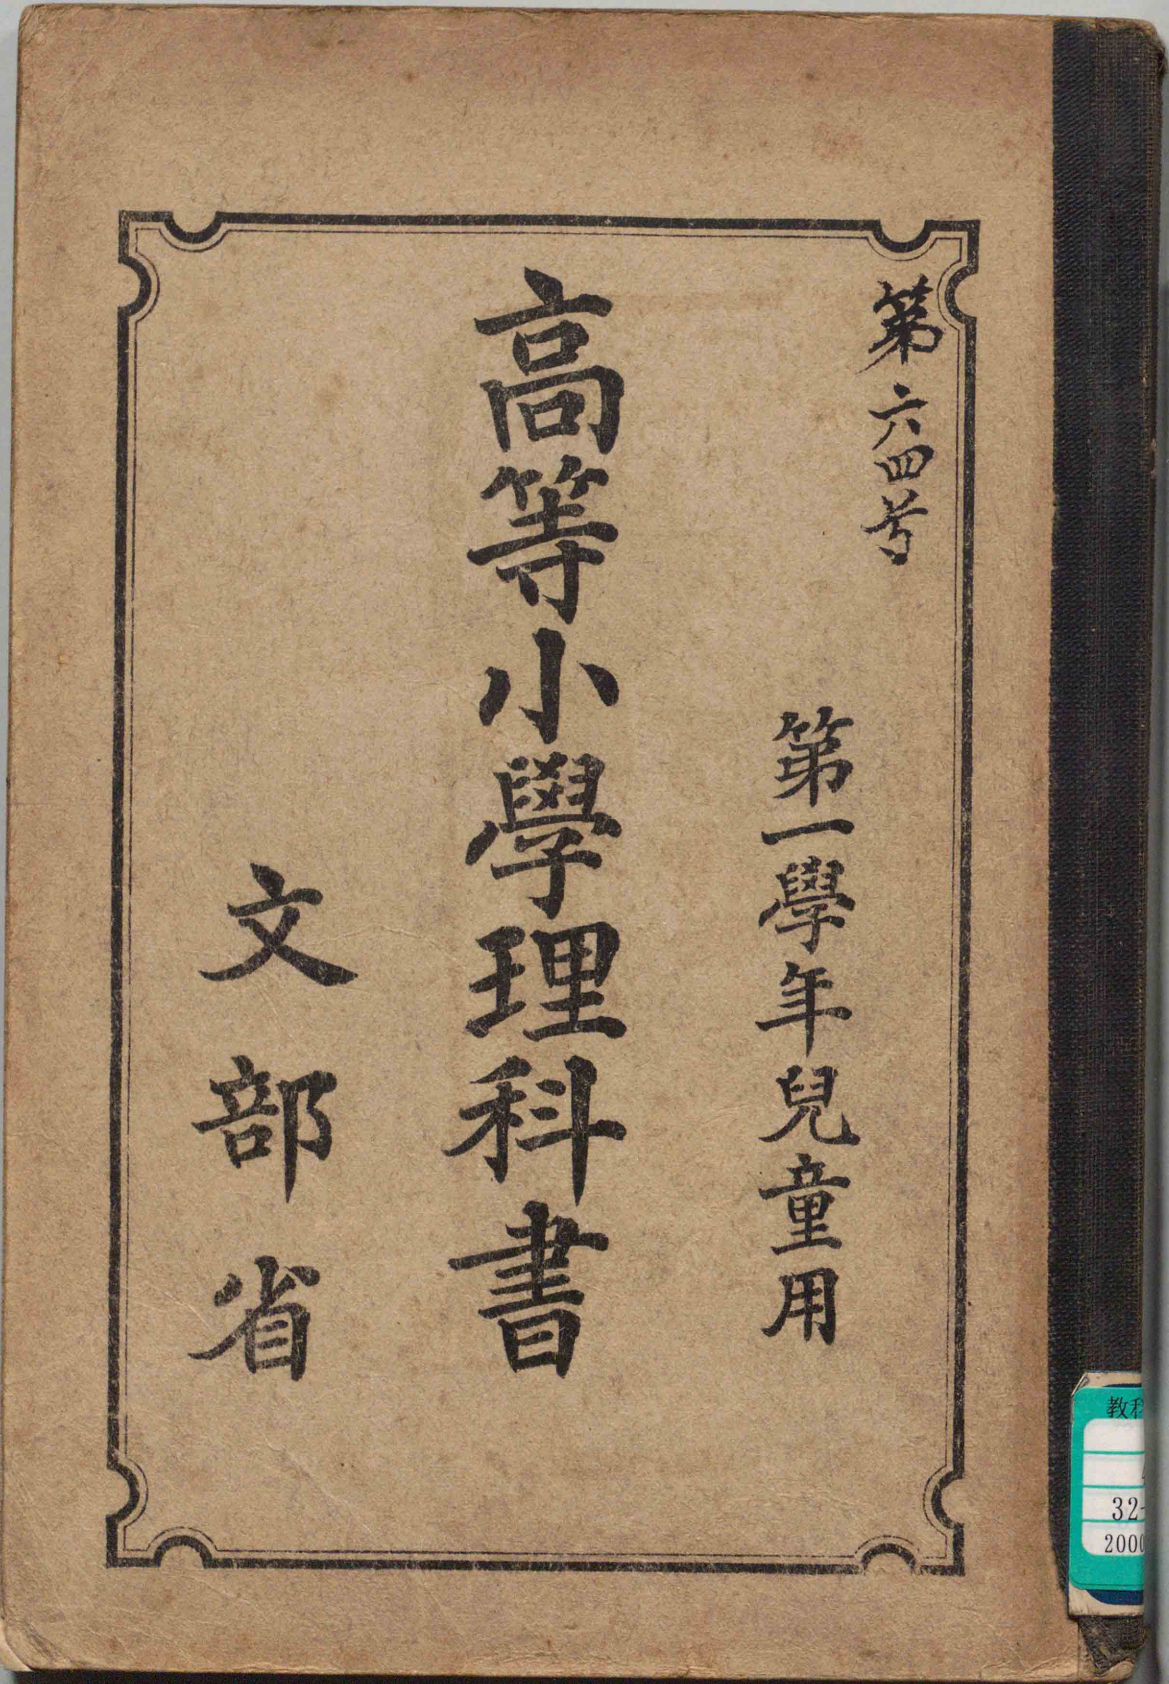 第六四号
第一學年兒童用
高等小學理科書
文部省
教科
32-
2000